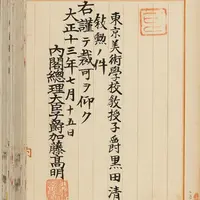 東京美術學校教授子爵黒田清
敍勲ノ件
右謹テ裁可ヲ仰ク
大正十三年七月十五日
内閣總理大臣子爵加藤高明